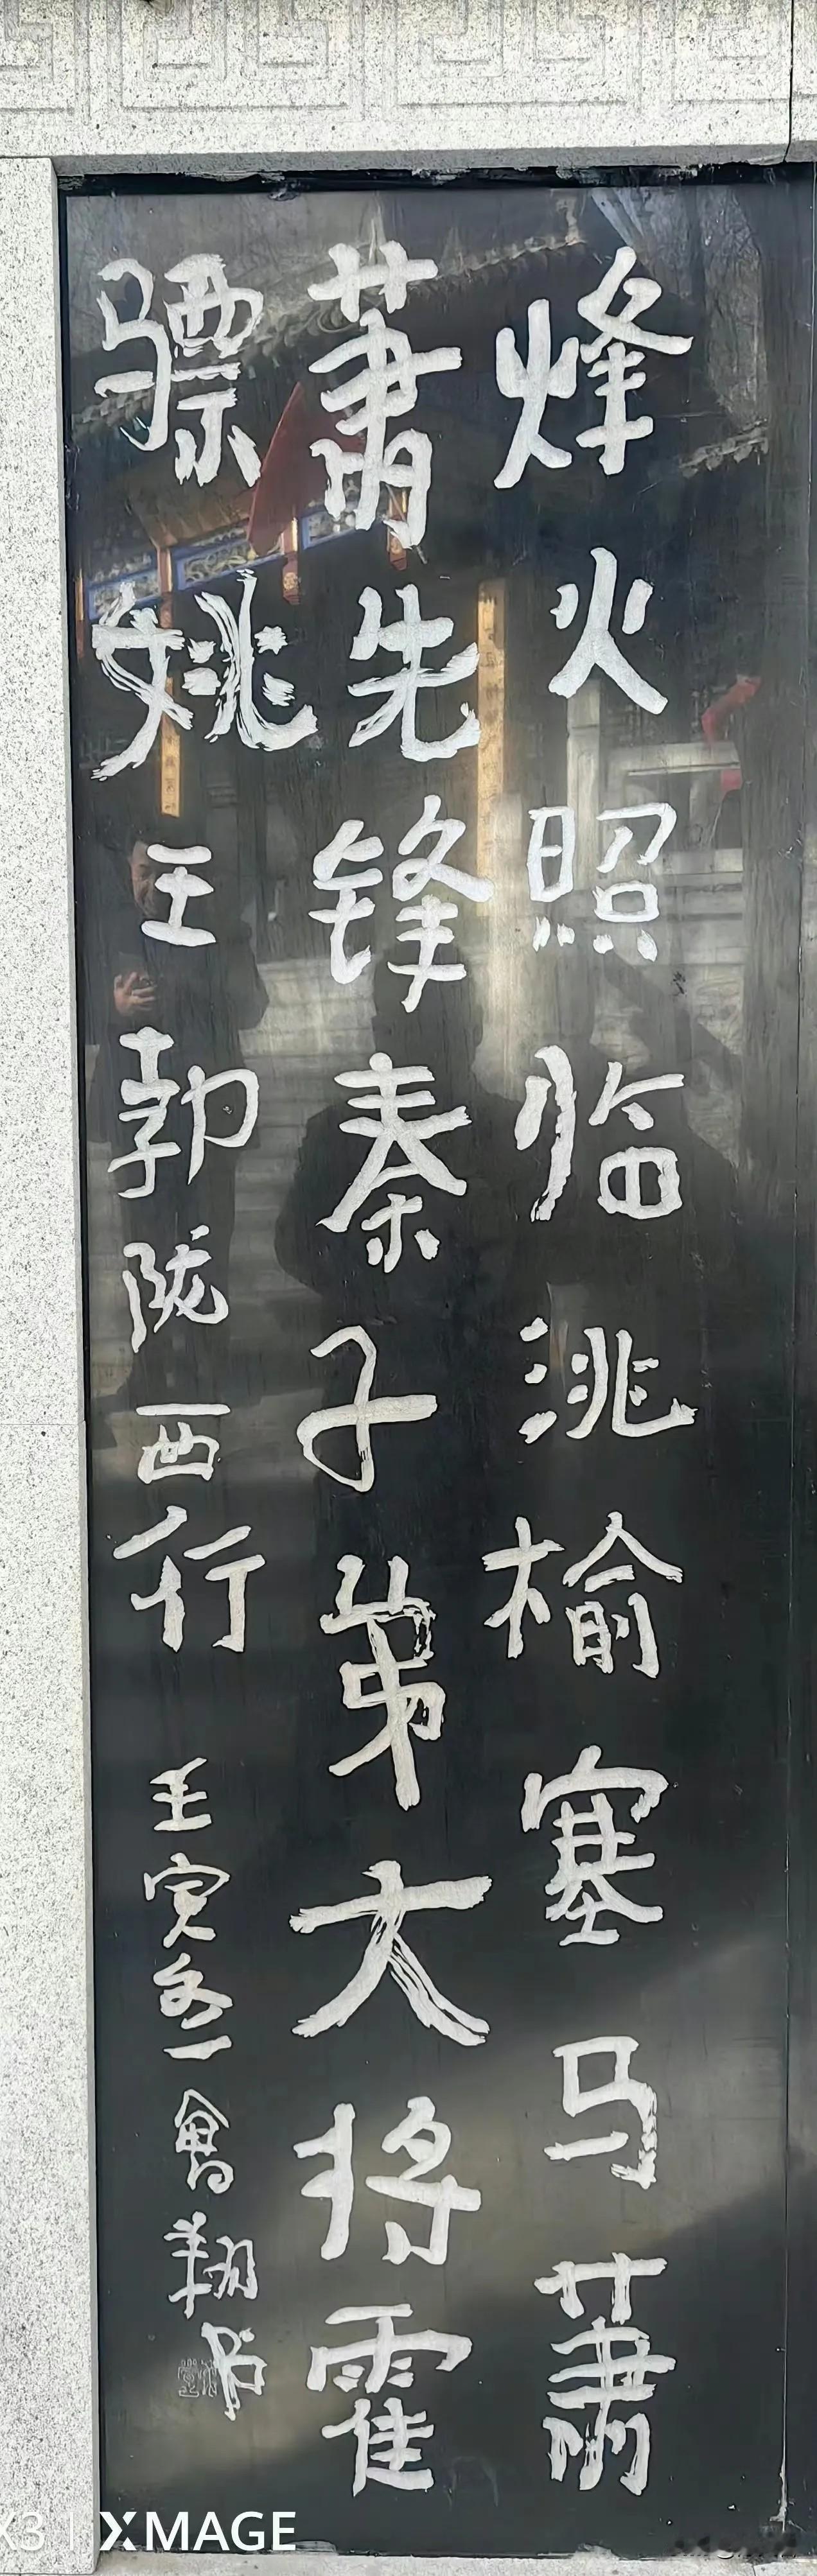 烽火照临洮榆塞马萧
萧先锋秦子弟大将霍
骠姚王勃陇西行 壬寅冬 翔书
XMAGE